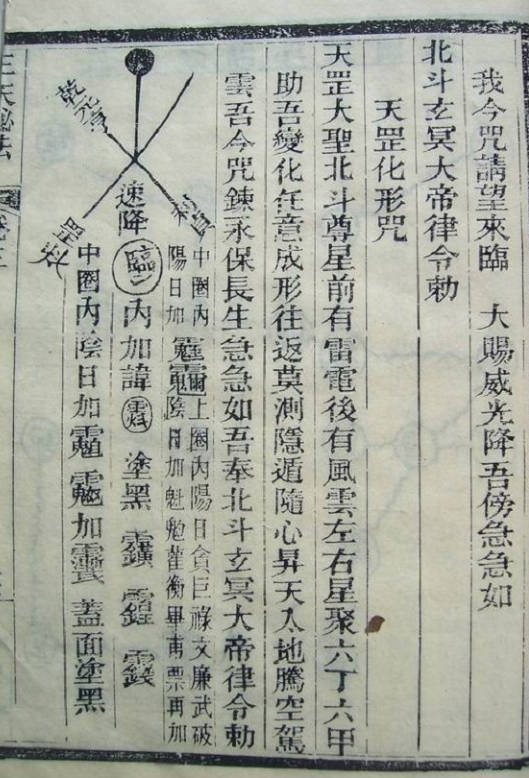 我今咒請望來臨　大賜威光降吾傍急急如
北斗玄冥大帝律令勅
天罡化形咒
天罡大聖北斗尊星前有雷電後有風雲左右星聚六丁六甲
助吾變化任意成形往返莫測隱遁隨心昇天入地騰空駕
雲吾今咒鍊永保長生急急如吾奉北斗玄冥大帝律令勅
乾元亨
速降
中圈內
陽日加
上圈內陽日貪巨祿文廉武破
陰日加魁䰢䰣衡畢甫票再加
臨
內加諱
塗黑
中圈內陰日加
加
蓋面塗黑